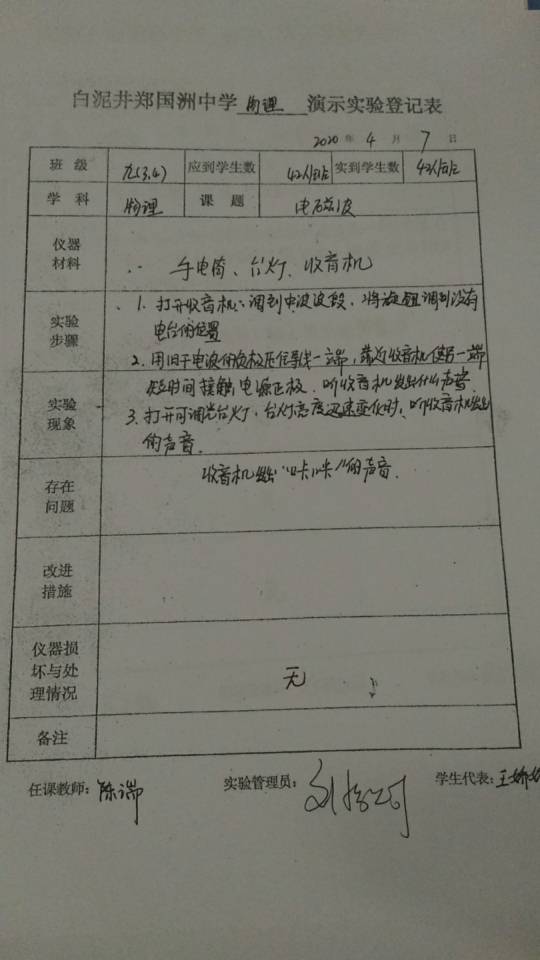 白泥井郑国洲中学 物理 演示实验登记表
2020 年 4 月 7 日
班 级 九(3.4) 应到学生数 42人/班 实到学生数 42人/班
学 科 物理 课 题 电磁波
仪器材料 手电筒、台灯、收音机
实验步骤
1. 打开收音机:调到中波波段,将旋钮调到没有
电台的位置
2. 用旧干电池的负极压住导线一端,靠近收音机使另一端
实验现象
短时间接触电源正极.听收音机发出什么声音.
3. 打开可调光台灯,台灯亮度迅速变化时,听收音机发出
的声音.
存在问题 收音机发出“咔咔”的声音.
改进措施
仪器损坏与处理情况 无
备注
任课教师:陈瑞 实验管理员: 学生代表:王娇